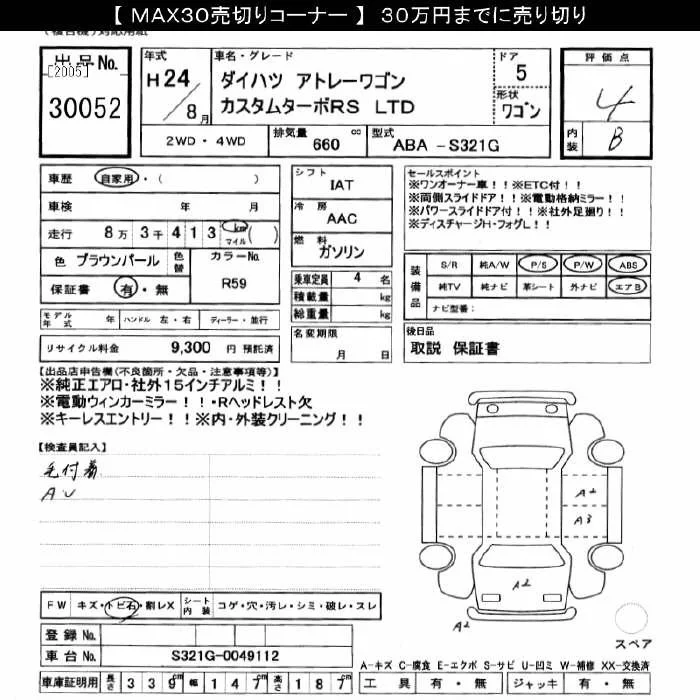 【 MAX30売切りコーナー 】 30万円までに売り切り
出品No.
[2005]
30052
年式
H24/8月
車名・グレード
ダイハツ アトレーワゴン
カスタムターボRS LTD
ドア
5
形状
ワゴン
評価点
4
内装
B
2WD・4WD
排気量 660 cc
型式 ABA-S321G
車歴 自家用・( )
車検 年 月
走行 8万3千413km マイル( )
色 ブラウンパール 色替
カラーNo.
R59
保証書 有・無
モデル年式 年 ハンドル 左・右 ディーラー・並行
リサイクル料金 9,300 円 預託済
シフト
IAT
冷房
AAC
燃料
ガソリン
乗車定員 4 名
積載量 kg
総重量 kg
名変期限
月 日
セールスポイント
※ワンオーナー車!!※ETC付!!
※両側スライドドア!!※電動格納ミラー!!
※パワースライドドア付!!※社外足廻り!!
※ディスチャージH・フォグL!!
装備品
S/R 純A/W P/S P/W ABS
純TV 純ナビ 革シート 外ナビ エアB
ナビ型番:
後日品
取説 保証書
【出品店申告欄(不良箇所・欠品・注意事項等)】
※純正エアロ・社外15インチアルミ!!
※電動ウィンカーミラー!!・Rヘッドレスト欠
※キーレスエントリー!!※内・外装クリーニング!!
【検査員記入】
毛付着
AU
A2
A3
A2
A2
スペア
FW キズ・トビ石・割レX シート内装 コゲ・穴・汚レ・シミ・破レ・スレ
登録No.
車台No. S321G-0049112
A-キズ C-腐食 E-エクボ S-サビ U-凹ミ W-補修 XX-交換済
車庫証明用 長さ 339cm 幅 147cm 高さ 187cm
工具 有・無 ジャッキ 有・無